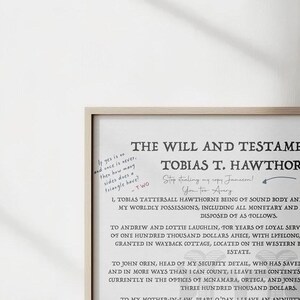 THE WILL AND TESTAME
TOBIAS T. HAWTHOR
If yes is no
and once is never,
then how many
sides does a
triangle have?
- TWH
Stop stealing my copy Jameson!
You too Avery
I, TOBIAS TATTERSALL HAWTHORNE BEING OF SOUND BODY AN
MY WORLDLY POSSESSIONS, INCLUDING ALL MONETARY AND
DISPOSED OF AS FOLLOWS.
TO ANDREW AND LOTTIE LAUGHLIN, FOR YEARS OF LOYAL SERV
OF ONE HUNDRED THOUSAND DOLLARS APIECE, WITH LIFELONG,
GRANTED IN WAYBACK COTTAGE, LOCATED ON THE WESTERN
ESTATE.
TO JOHN OREN, HEAD OF MY SECURITY DETAIL, WHO HAS SAVE
AND IN MORE WAYS THAN I CAN COUNT, I LEAVE THE CONTENTS
CURRENTLY IN THE OFFICES OF MCNAMARA, ORTEGA, AND JONES
THREE HUNDRED THOUSAND DOLLARS.
TO MY MOTHER-IN-LAW, PEARL O'DAY, I LEAVE AN ANNUIT